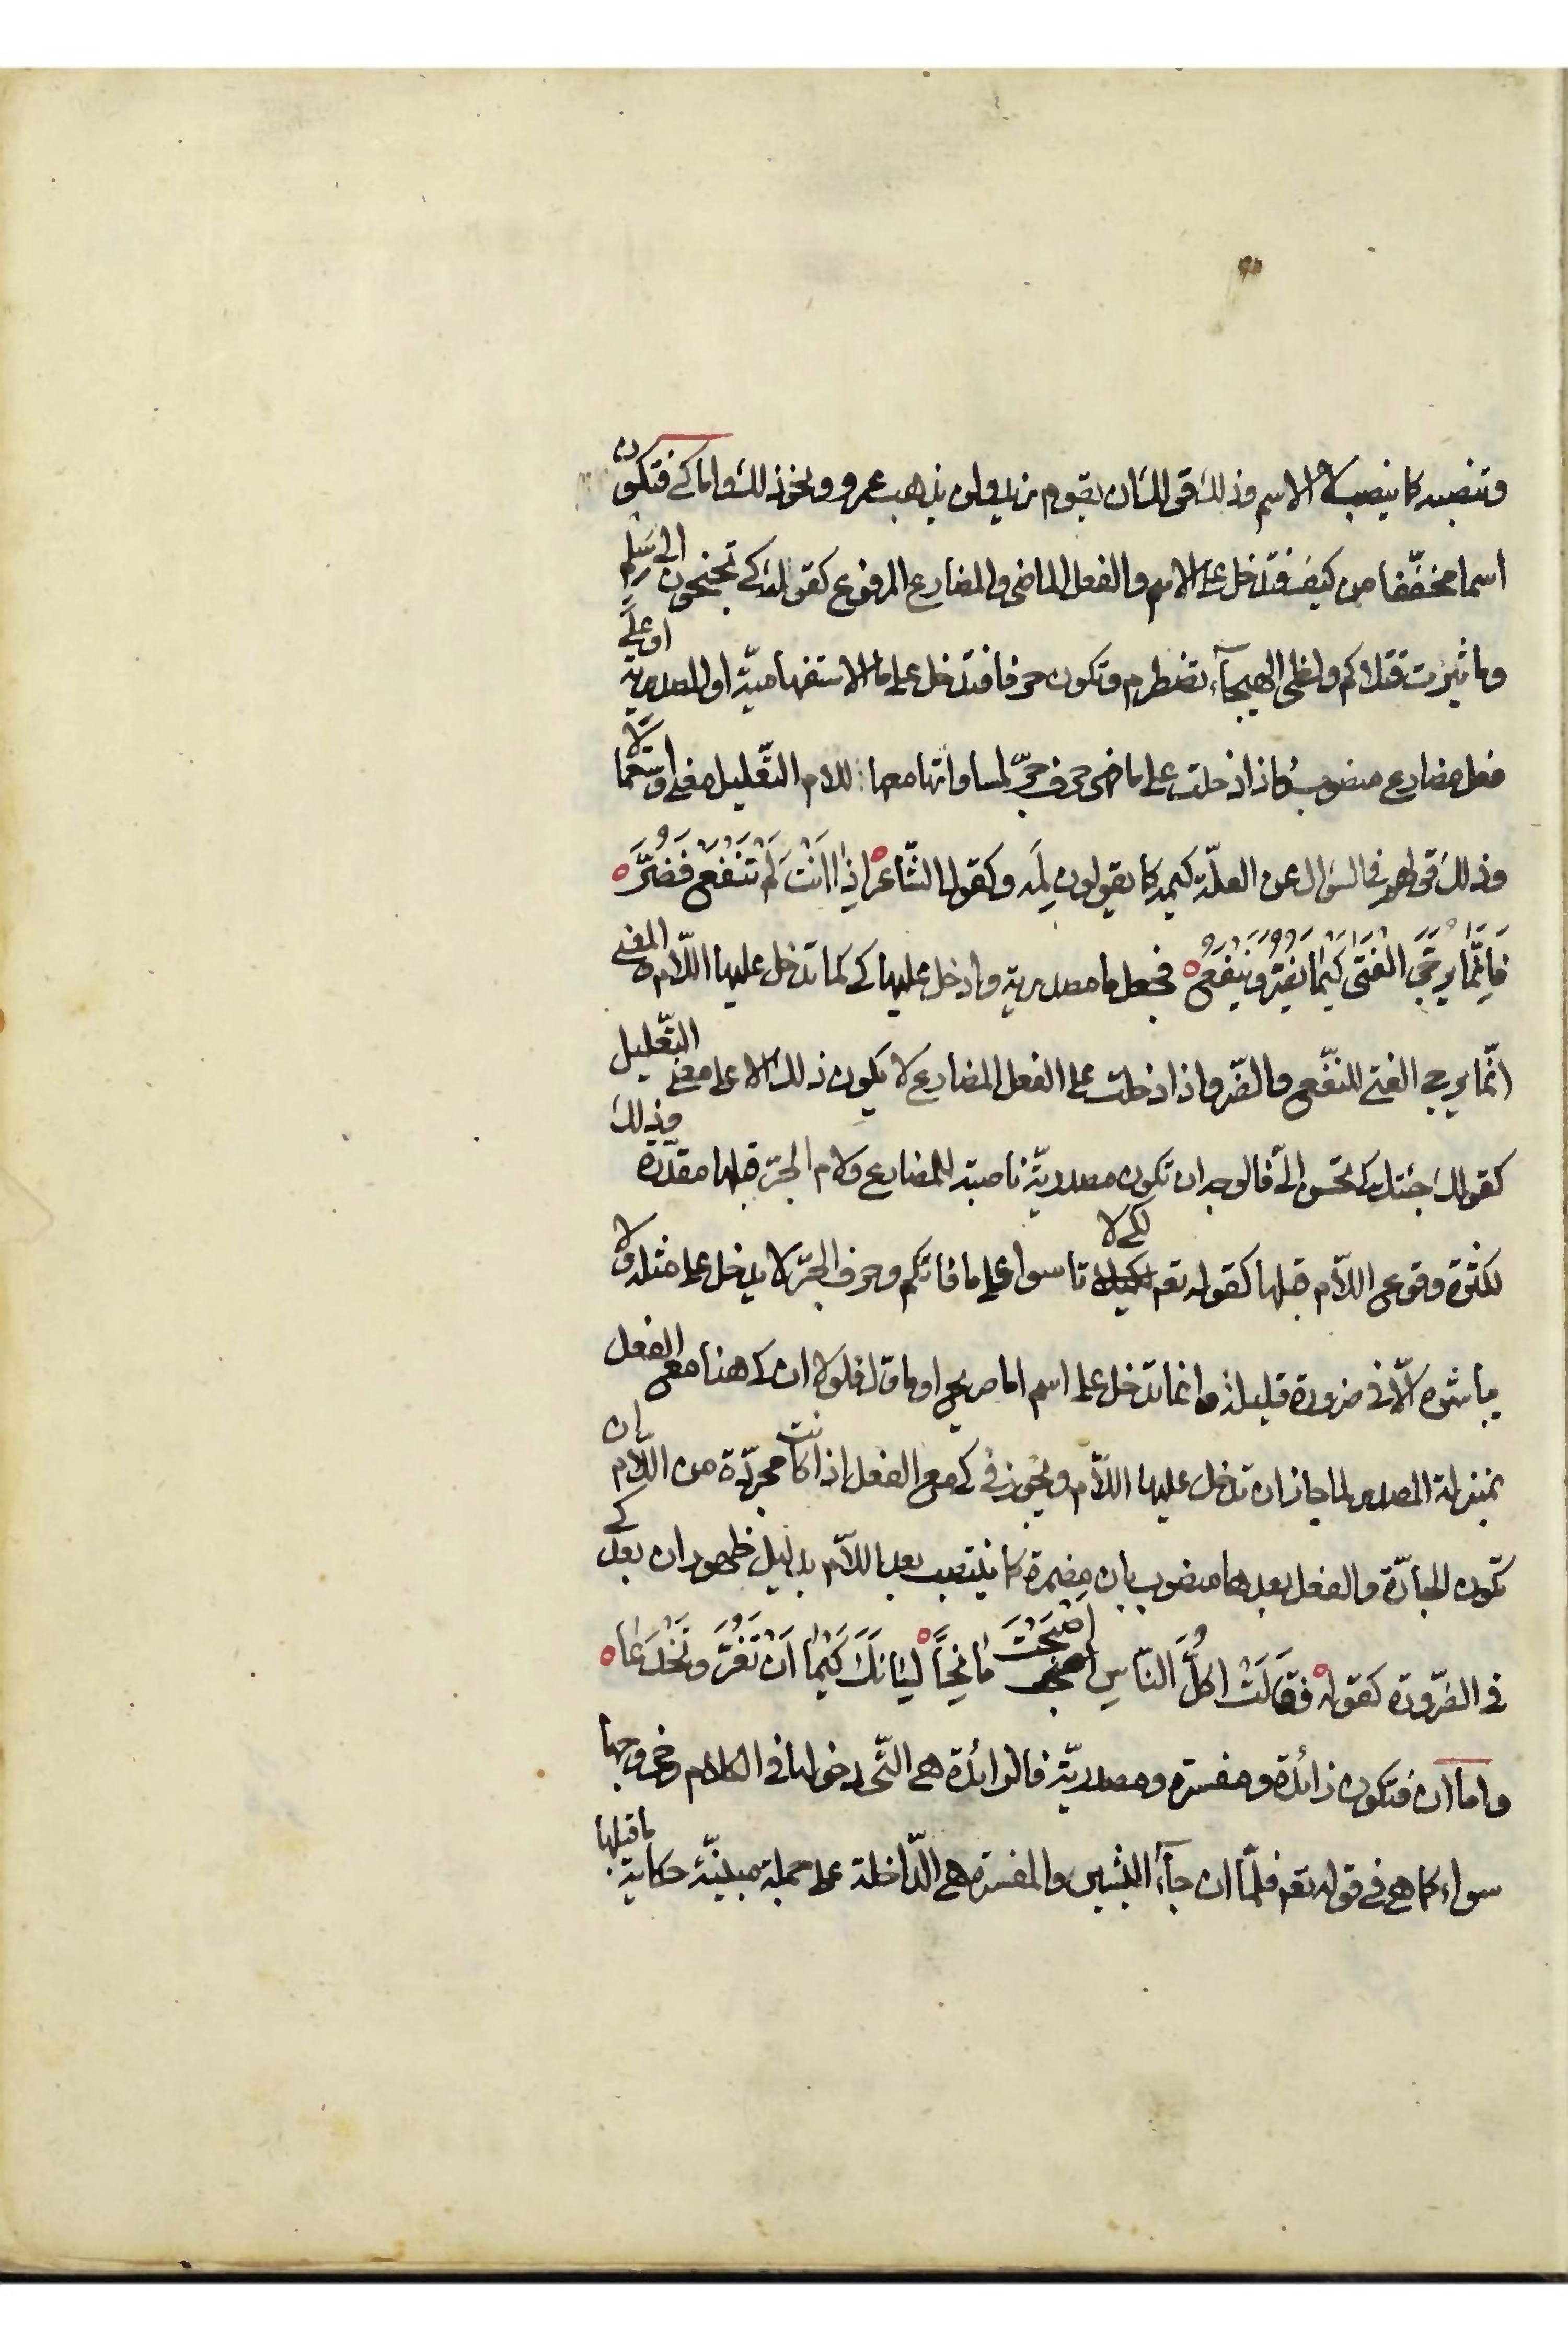 وتنصبه كما ينصب لا الاسم وذلك قولك لن يقوم زيد ولن يذهب عمرو ونحو ذلك واما كي فتكون
اسما مخففا من كيف فتدخل على الاسم والفعل الماضي والمضارع المرفوع كقولك كي تجنحون الى سلم
وما ثئرت قتلاكم ولظى الهيجاء تضطرم وتكون حرفا فتدخل على ما الاستفهامية او المصدرية او على
فعل مضارع منصوب فاذا دخلت على ما فهي حرف جر لمساواتها معها للام التعليل معنى واستعمالا
وذلك قولهم في السؤال عن العلة كيمه كما يقولون لمه وكقول الشاعر اِذَا اَنْتَ لَمْ تَنْفَعْ فَضُرَّ
فَاِنَّمَا يُرَجَّى الْفَتَى كَيْمَا يَضُرُّ وَيَنْفَعُ فجعل ما مصدرية وادخل عليها كي كما تدخل عليها اللام المعنى
انّما يرجى الفتى للنفع والضر واذا دخلت على الفعل المضارع لا يكون ذلك الا على معنى التعليل
كقولك جئتك كي تحسن اليّ فالوجه ان تكون مصدرية ناصبة للمضارع ولام الجر قبلها مقدرة وذلك
لكثرة وقوع اللام قبلها كقوله تعه لكي لا تاسوا على ما فاتكم وحرف الجر لا يدخل على مثله ولا
يباشره الّا في ضرورة قليلة وانما تدخل على اسم اما صريح او ماول فلولا ان كي هنا مع الفعل
بمنزلة المصدر لما جاز ان تدخل عليها اللام ويجوز في كي مع الفعل اذا كانت مجردة من اللام ان
تكون الجارّة والفعل بعدها منصوب بان مضمرة كما ينتصب بعد اللام بدليل ظهور ان بعد كي
في الضرورة كقوله فَقَالَتْ اَكُلَّ النَّاسِ اَصْبَحْتَ مَانِحًا لِسَانَكَ كَيْمَا اَنْ تَغُرَّ وَتَخْدَعَا
واما ان فتكون زائدة ومفسرة ومصدريّة فالزائدة هي التي دخولها في الكلام وخروجها
سواء كما هي في قوله تعه فلمّا ان جاء البشير والمفسرة هي الدّاخلة على جملة مبينة حكاية ما قبلها